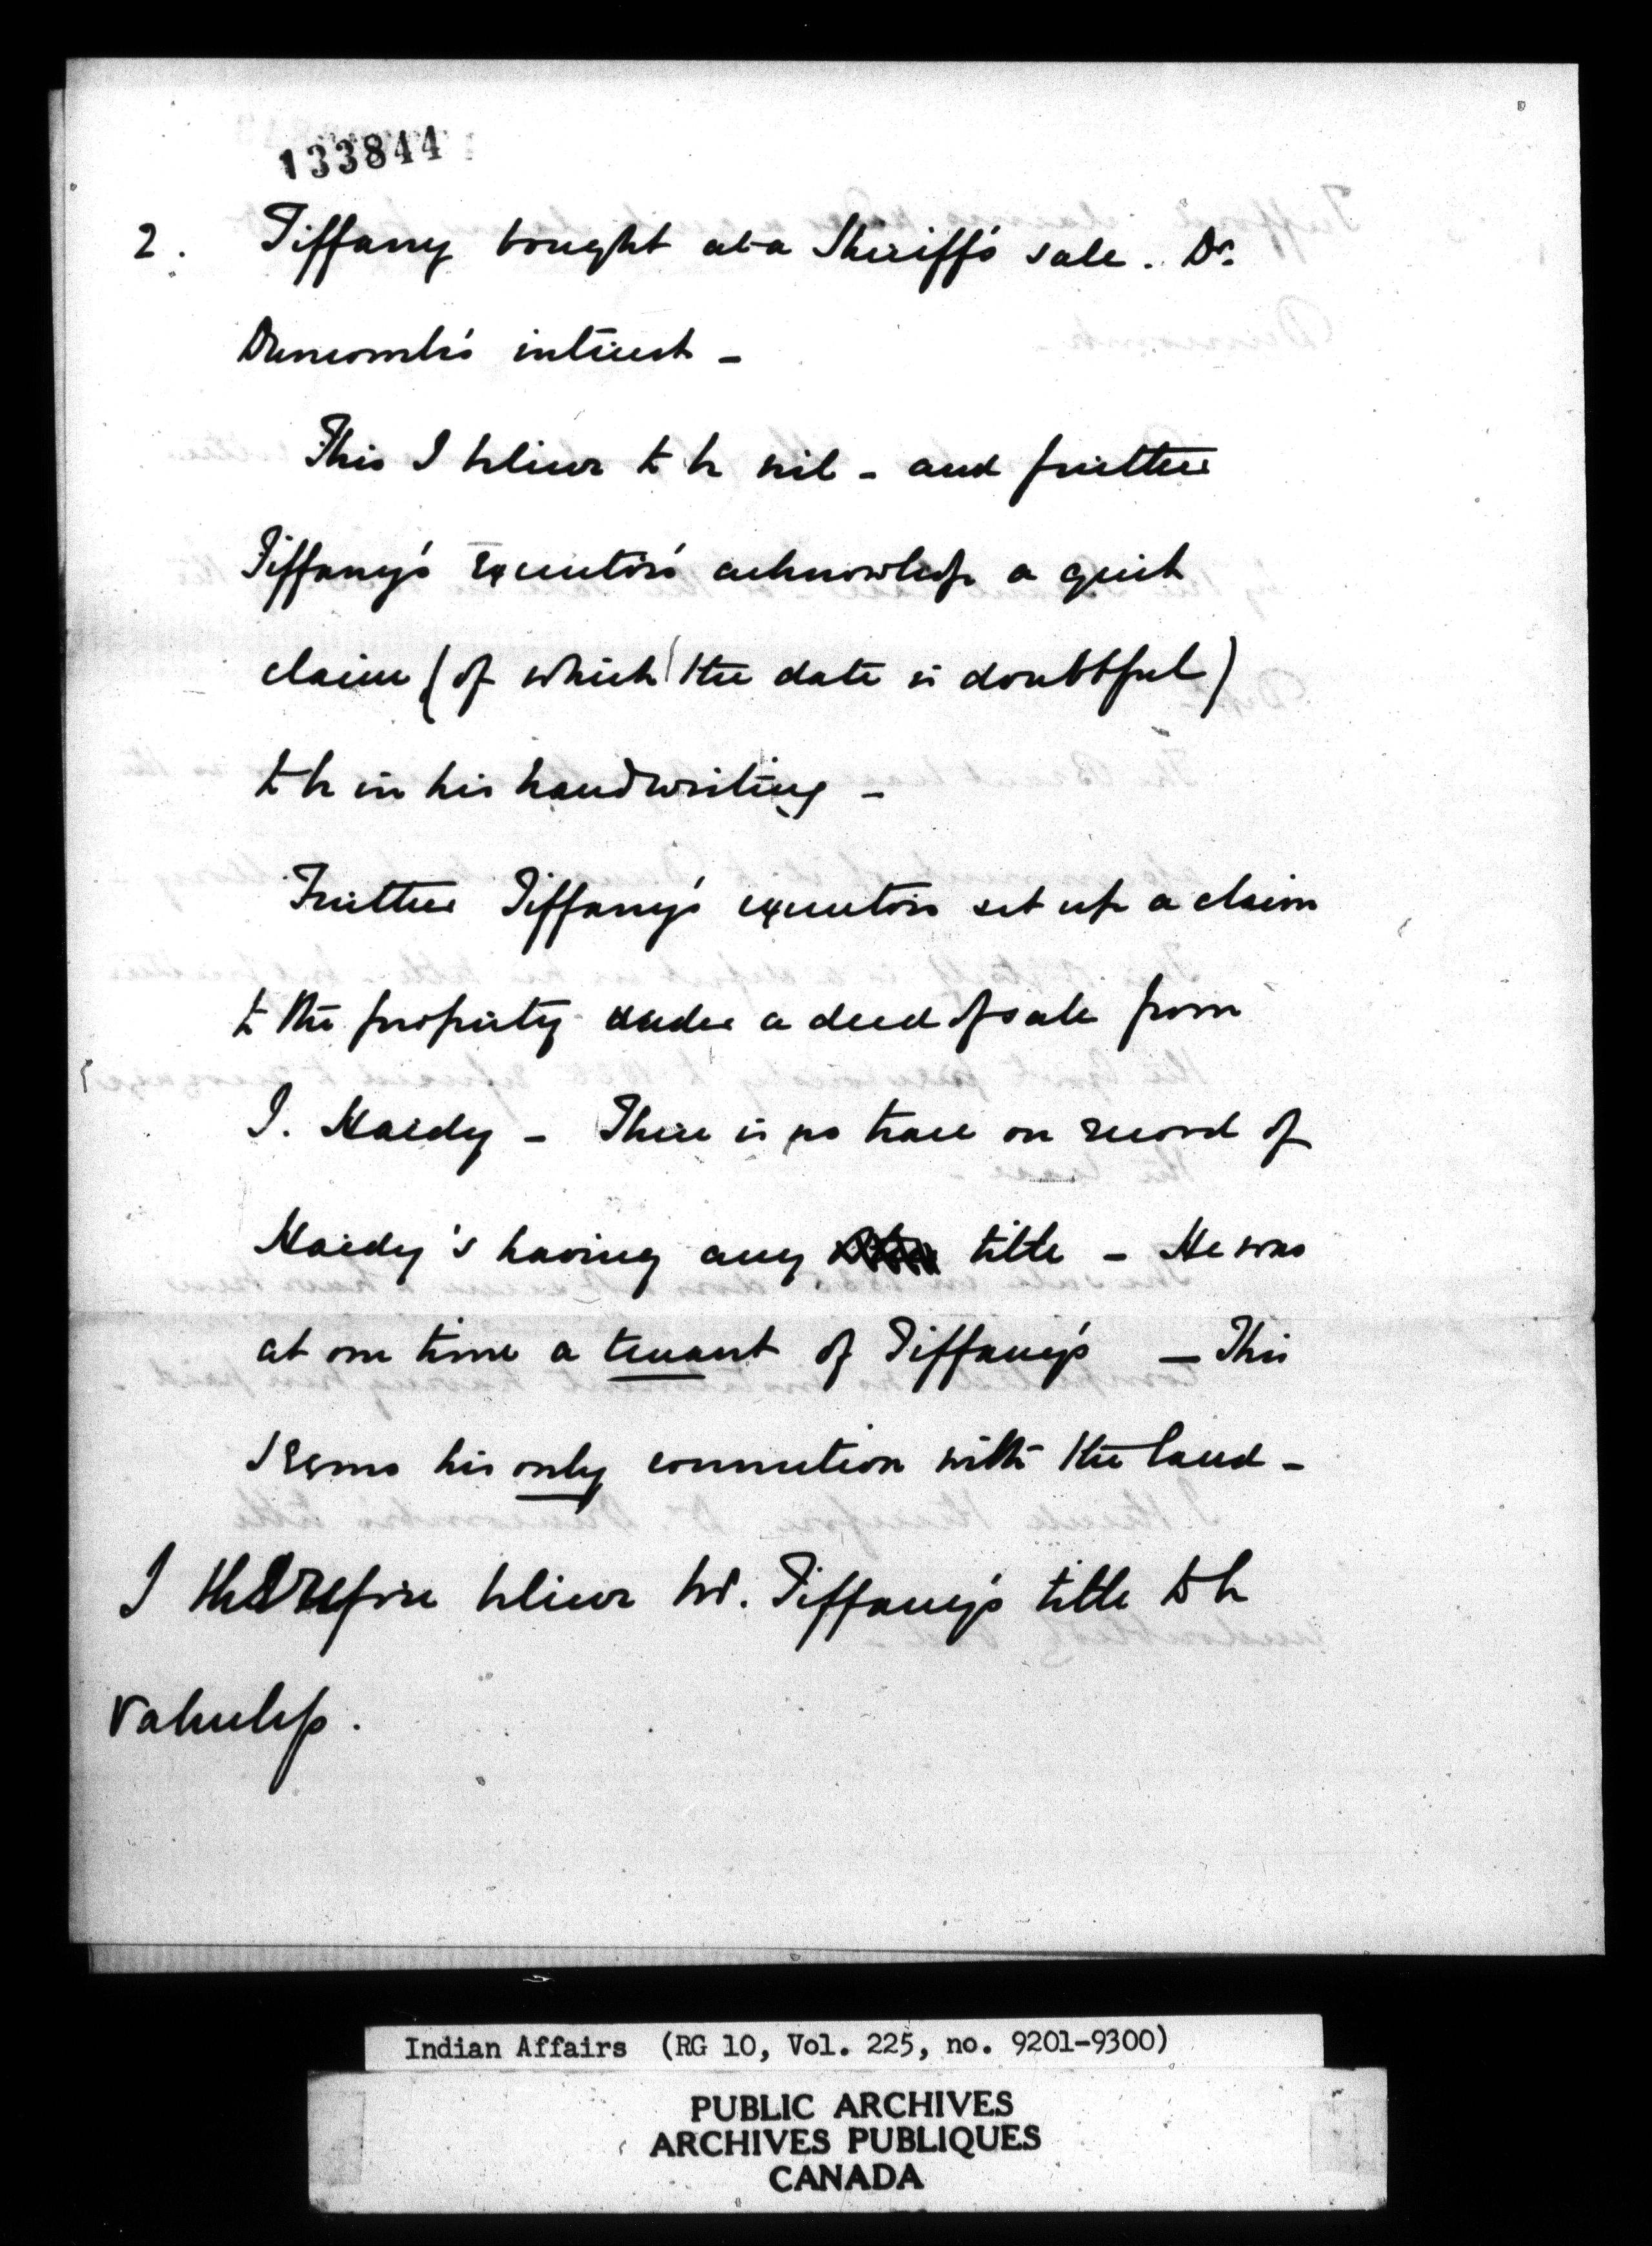 133844
2. Tiffany bought at a Sheriff's sale. Dr.
Duncomb's interest -
This I believe to be nil - and further
Tiffany's Executors acknowledge a quit
claim (of which the date is doubtful)
to be in his handwriting -
Further Tiffany's executors set up a claim
to the property under a deed of sale from
I. Hardy - There is no trace on record of
Hardy's having any title - He was
at one time a tenant of Tiffany's - This
seems his only connection with the land -
I therefore believe Mr. Tiffany's title to be
valueless.
Indian Affairs (RG 10, Vol. 225, no. 9201-9300)
PUBLIC ARCHIVES
ARCHIVES PUBLIQUES
CANADA